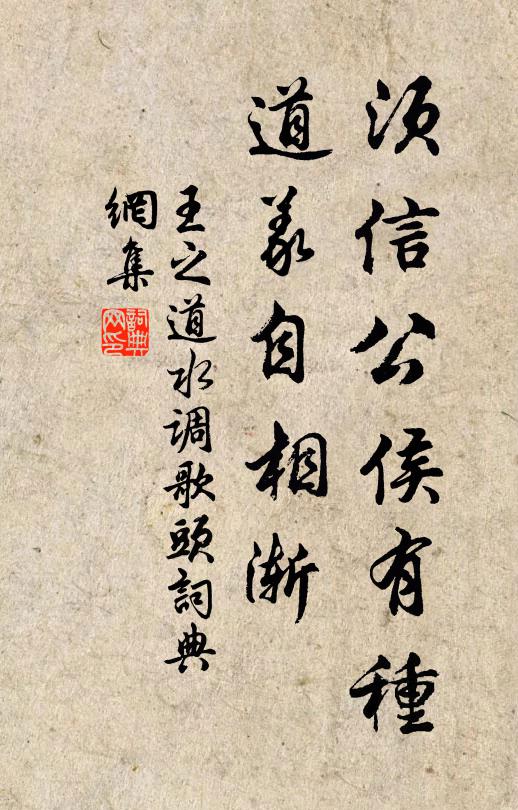 须信公侯有種
道義自相漸
王之道水调歌頭詞典
網集
詞典網印